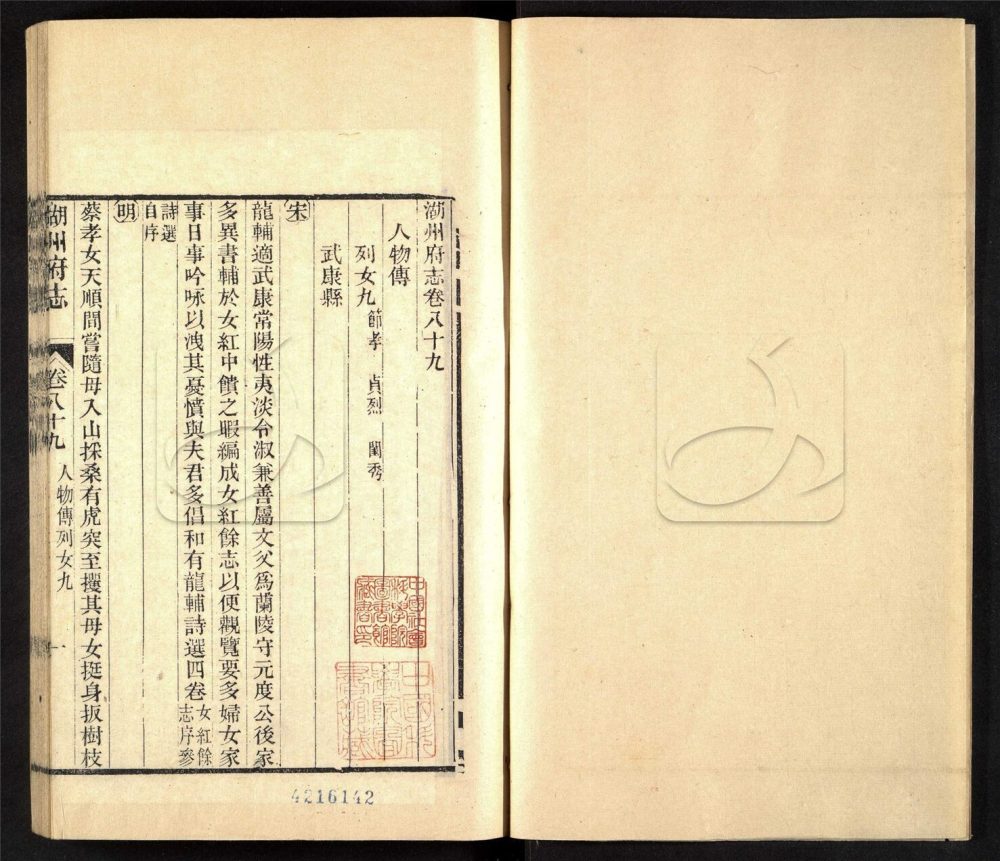 湖州府志卷八十九
人物傳
列女九 節孝 貞烈 閨秀
武康縣
宋
龍輔適武康常陽性夷淡令淑兼善屬文父爲蘭陵守元度公後家
多異書輔於女紅中饋之暇編成女紅餘志以便觀覽要多婦女家
事日事吟咏以洩其憂憤與夫君多倡和有龍輔詩選四卷女紅餘志序參
詩選自序
明
蔡孝女天順間嘗隨母入山採桑有虎突至攫其母女挺身扳樹枝
湖州府志 卷八十九 人物傳列女九 一
中國社會科學院圖書館藏書印
4216142